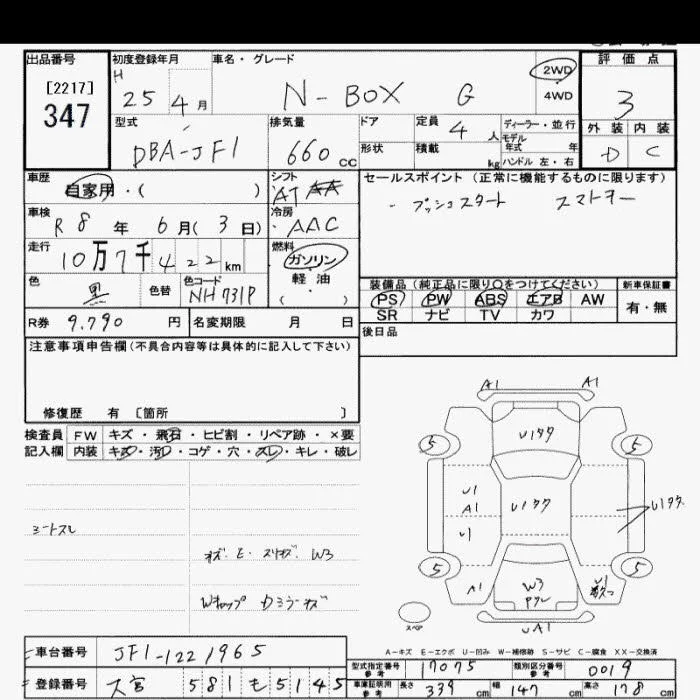 出品番号
[2217]
347
初度登録年月
H 25年 4月
車名・グレード
N-BOX G
2WD
4WD
評価点
3
外装 内装
D C
型式
DBA-JF1
排気量
660 cc
ドア
形状
定員 4人
積載 kg
ディーラー・並行
モデル年式 年
ハンドル 左・右
車歴
自家用・( )
シフト
AT
車検
R 8年 6月(3日)
冷房
AAC
走行
10万7千422km
燃料
ガソリン
軽・油
( )
色
黒
色替
色コード
NH731P
R券 9.790 円
名変期限 月 日
セールスポイント(正常に機能するものに限ります)
プッシュスタート スマトキー
装備品(純正品に限り○をつけてください)
PS PW ABS エアB AW
SR ナビ TV カワ
新車保証書
有・無
後日品
注意事項申告欄(不具合内容等は具体的に記入して下さい)
修復歴 有 〔箇所 〕
検査員記入欄
FW キズ・飛石・ヒビ割・リペア跡・×要
内装 キズ・汚れ・コゲ・穴・スレ・キレ・破レ
シートスレ
W3
A1 A1
5 5
U1タタ
U1
A1
U1
U1タタ
U1タタ
5 5
A1
W3
U1
UA1
スペア
A-キズ E-エクボ U-凹み W-補修跡 S-サビ C-腐食 XX-交換済
車台番号 JF1-1221965
登録番号 大宮 581 も 5145
型式指定番号 参考 17075
類別区分番号 参考 0019
車庫証明用 参考 長さ 339cm 幅 147cm 高さ 178cm